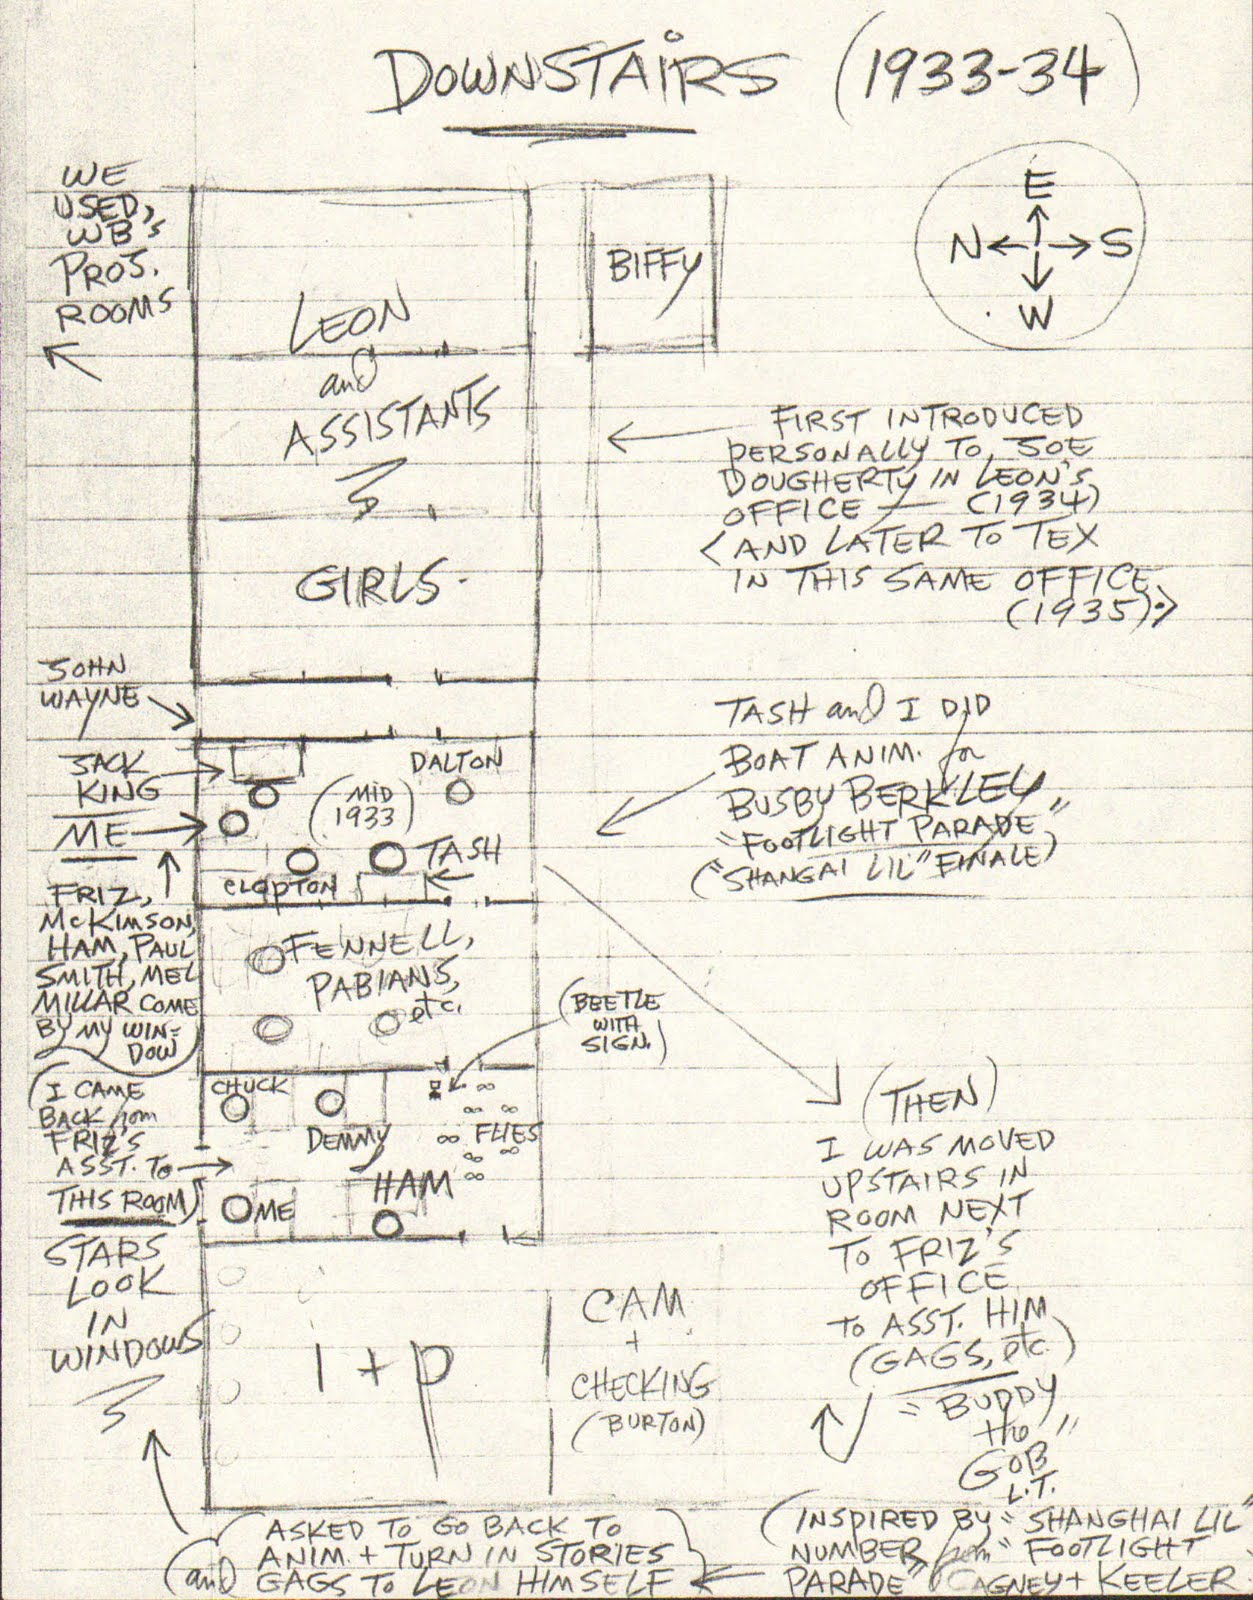 DOWNSTAIRS (1933-34)
WE
USED,
WB's
PROJ.
ROOMS
E
N S
W
BIFFY
LEON
and
ASSISTANTS
GIRLS
FIRST INTRODUCED
PERSONALLY TO JOE
DOUGHERTY IN LEON'S
OFFICE — (1934)
<AND LATER TO TEX
IN THIS SAME OFFICE
(1935)>
JOHN
WAYNE
JACK
KING
ME
DALTON
(MID
1933)
TASH
CLOPTON
TASH and I DID
BOAT ANIM. for
BUSBY BERKLEY
"FOOTLIGHT PARADE"
("SHANGAI LIL" FINALE)
FRIZ,
McKIMSON,
HAM, PAUL
SMITH, MEL
MILLAR COME
BY MY WIN-
DOW
FENNELL,
PABIANS,
etc.
(BEETLE
WITH
SIGN.)
(I CAME
BACK from
FRIZ'S
ASST. TO
THIS ROOM)
CHUCK
DEMMY
FLIES
HAM
ME
(THEN)
I WAS MOVED
UPSTAIRS IN
ROOM NEXT
TO FRIZ'S
OFFICE
TO ASST. HIM
(GAGS, etc.)
"BUDDY
THE
GOB"
L.T.
STARS
LOOK
IN
WINDOWS
I + P
CAM
+
CHECKING
(BURTON)
(ASKED TO GO BACK TO
ANIM. + TURN IN STORIES
(and GAGS TO LEON HIMSELF
(INSPIRED BY "SHANGHAI LIL"
NUMBER from "FOOTLIGHT
PARADE" CAGNEY + KEELER